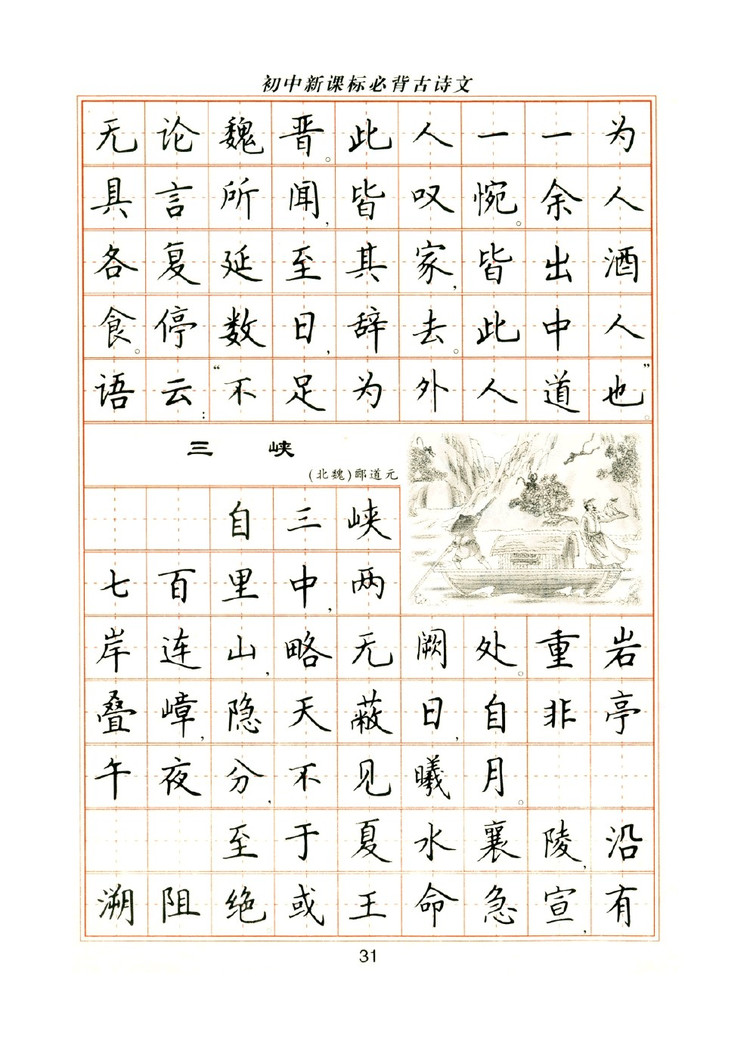 初中新课标必背古诗文
无论魏晋。此人一一为
具言所闻,皆叹惋。余人
各复延至其家,皆出酒
食。停数日,辞去。此中人
语云:“不足为外人道也”。
三 峡
(北魏)郦道元
自三峡
七百里中,两
岸连山,略无阙处。重岩
叠嶂,隐天蔽日,自非亭
午夜分,不见曦月。
至于夏水襄陵,沿
溯阻绝或王命急宣,有
31